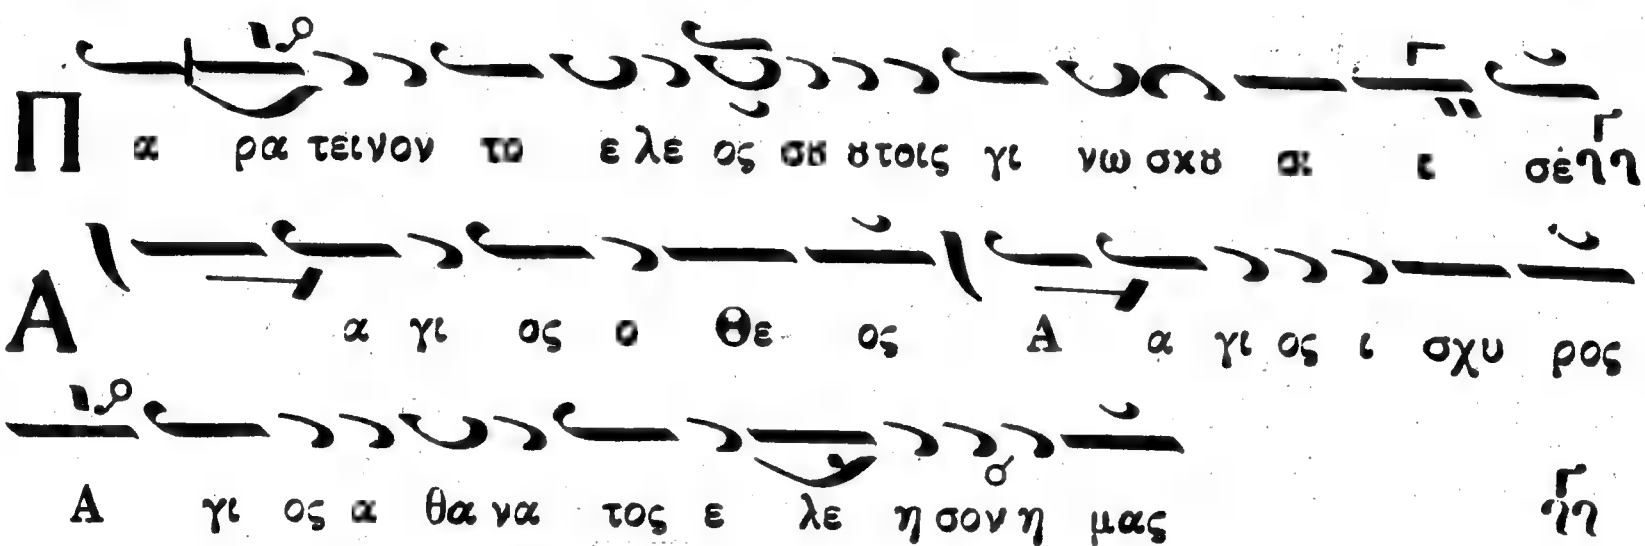 Π α ρα τεινον το ε λε ος σȣ ȣτοις γι νω σκȣ σι ι σέ
Α α γι ος ο Θε ος Α α γι ος ι σχυ ρος
Α γι ος α θα να τος ε λε η σον η μας